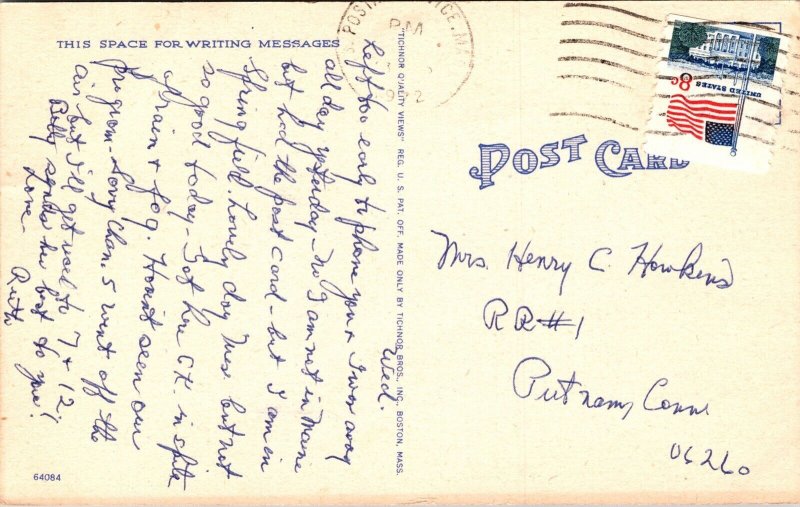 THIS SPACE FOR WRITING MESSAGES
Wed.
Left too early to phone you & I was away
all day yesterday - No I am not in Maine
but had the post card - but I am in
Springfield. Lovely day Tues. but not
so good today - Got here O.K. in spite
of rain & fog. Haven't seen our
program - Sorry Chan. 5 went off the
air but I'll get used to 7 & 12.
Betty sends her best to you!
Love -
Ruth
64084
"TICHNOR QUALITY VIEWS" REG. U. S. PAT. OFF. MADE ONLY BY TICHNOR BROS., INC., BOSTON, MASS.
PM
UNITED STATES
8c
POST CARD
Mrs. Henry C. Hawkins
RR#1
Putnam, Conn
06260